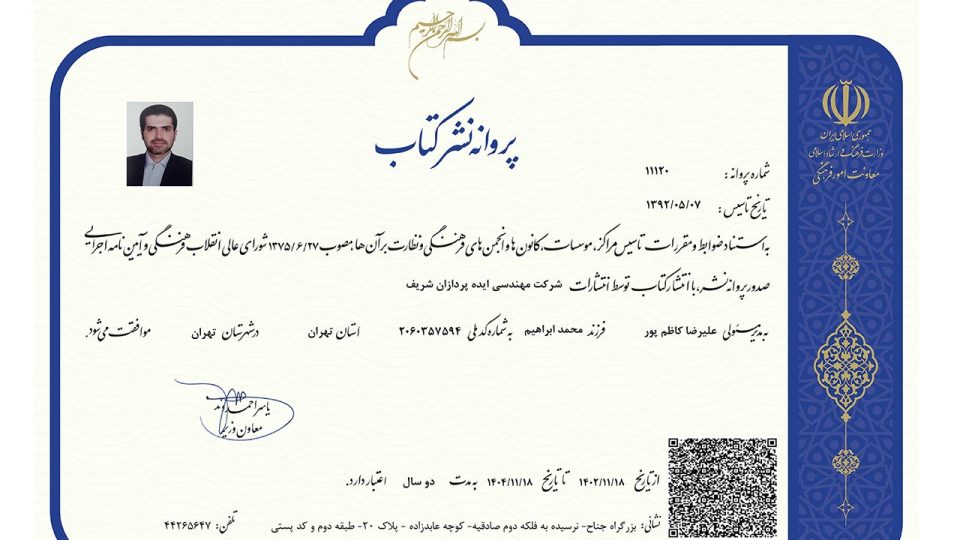 بسم الله الرحمن الرحیم
جمهوری اسلامی ایران
وزارت فرهنگ و ارشاد اسلامی
معاونت امور فرهنگی
پروانه نشر کتاب
شماره پروانه: ۱۱۱۲۰
تاریخ تاسیس: ۱۳۹۲/۰۵/۰۷
به استناد ضوابط و مقررات تاسیس مراکز، موسسات، کانون ها و انجمن های فرهنگی و نظارت بر آن ها مصوب ۱۳۷۵/۶/۲۷ شورای عالی انقلاب فرهنگی و آیین نامه اجرایی
صدور پروانه نشر، با انتشار کتاب توسط انتشارات شرکت مهندسی ایده پردازان شریف
به مدیر مسئولی علیرضا کاظم پور فرزند محمد ابراهیم به شماره کد ملی ۲۰۶۰۳۵۷۵۹۴ استان تهران در شهرستان تهران موافقت می شود.
یاسر احمدوند
معاون وزیر
از تاریخ ۱۴۰۲/۱۱/۱۸ تا تاریخ ۱۴۰۴/۱۱/۱۸ به مدت دو سال اعتبار دارد.
نشانی: بزرگراه جناح- نرسیده به فلکه دوم صادقیه- کوچه عابدزاده - پلاک ۲۰- طبقه دوم و کد پستی تلفن: ۴۴۲۶۵۶۴۷